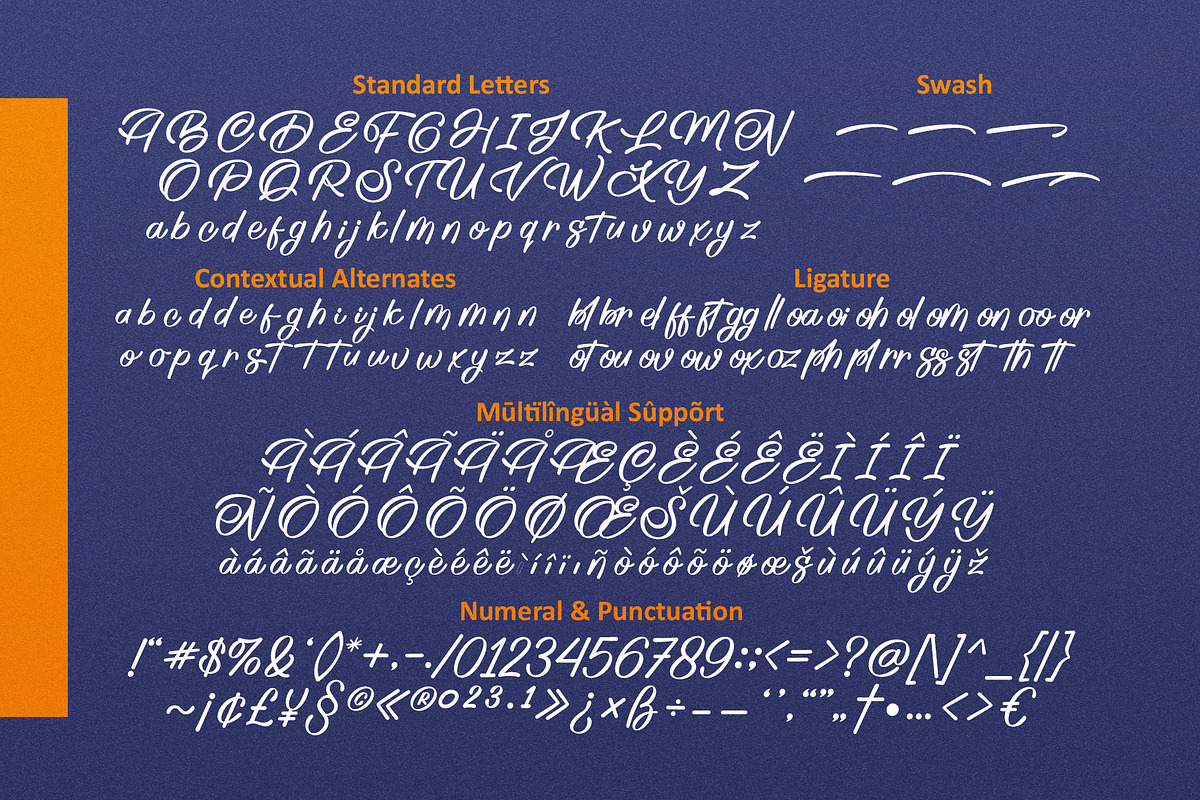 Standard Letters
A B C D E F G H I J K L M N
O P Q R S T U V W X Y Z
a b c d e f g h i j k l m n o p q r s t u v w x y z
Swash
Contextual Alternates
a b c d d e f g h i ij k l m m n n
o o p q r s t t t u u v w x y z z
Ligature
bl br el ff ft gg ll oa oi oh ol om on oo or
ot ou ov ow ox oz ph pl rr ss st th tt
Mūltïlîngüàl Sûppõrt
À Á Â Ã Ä Å Æ Ç È É Ê Ë Ì Í Î Ï
Ñ Ò Ó Ô Õ Ö Ø Œ Š Ù Ú Û Ü Ý Ÿ
à á â ã ä å æ ç è é ê ë ì í î ï ı ñ ò ó ô õ ö ø œ š ù ú û ü ý ÿ ž
Numeral & Punctuation
! “ # $ % & ‘ ( ) * + , - . / 0 1 2 3 4 5 6 7 8 9 : ; < = > ? @ [ \ ] ^ _ { | }
~ ¡ ¢ £ ¥ § © « ® º ² ³ · ¹ » ¿ × ß ÷ – — ‘ ’ ‚ “ ” „ † • … ‹ › €